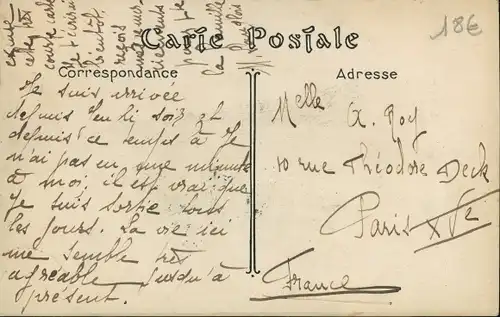 18€
Carte Postale
Correspondance
Adresse
Je suis arrivée
depuis lundi soir et
depuis ce temps là je
n'ai pas eu une minute
à moi, il est vrai que
je suis sortie tous
les jours. La vie ici
me semble très
agréable jusqu'à
présent.
bientôt.
reçois
la famille
Melle A. Roy
10 rue Théodore Deck
Paris XVe
France